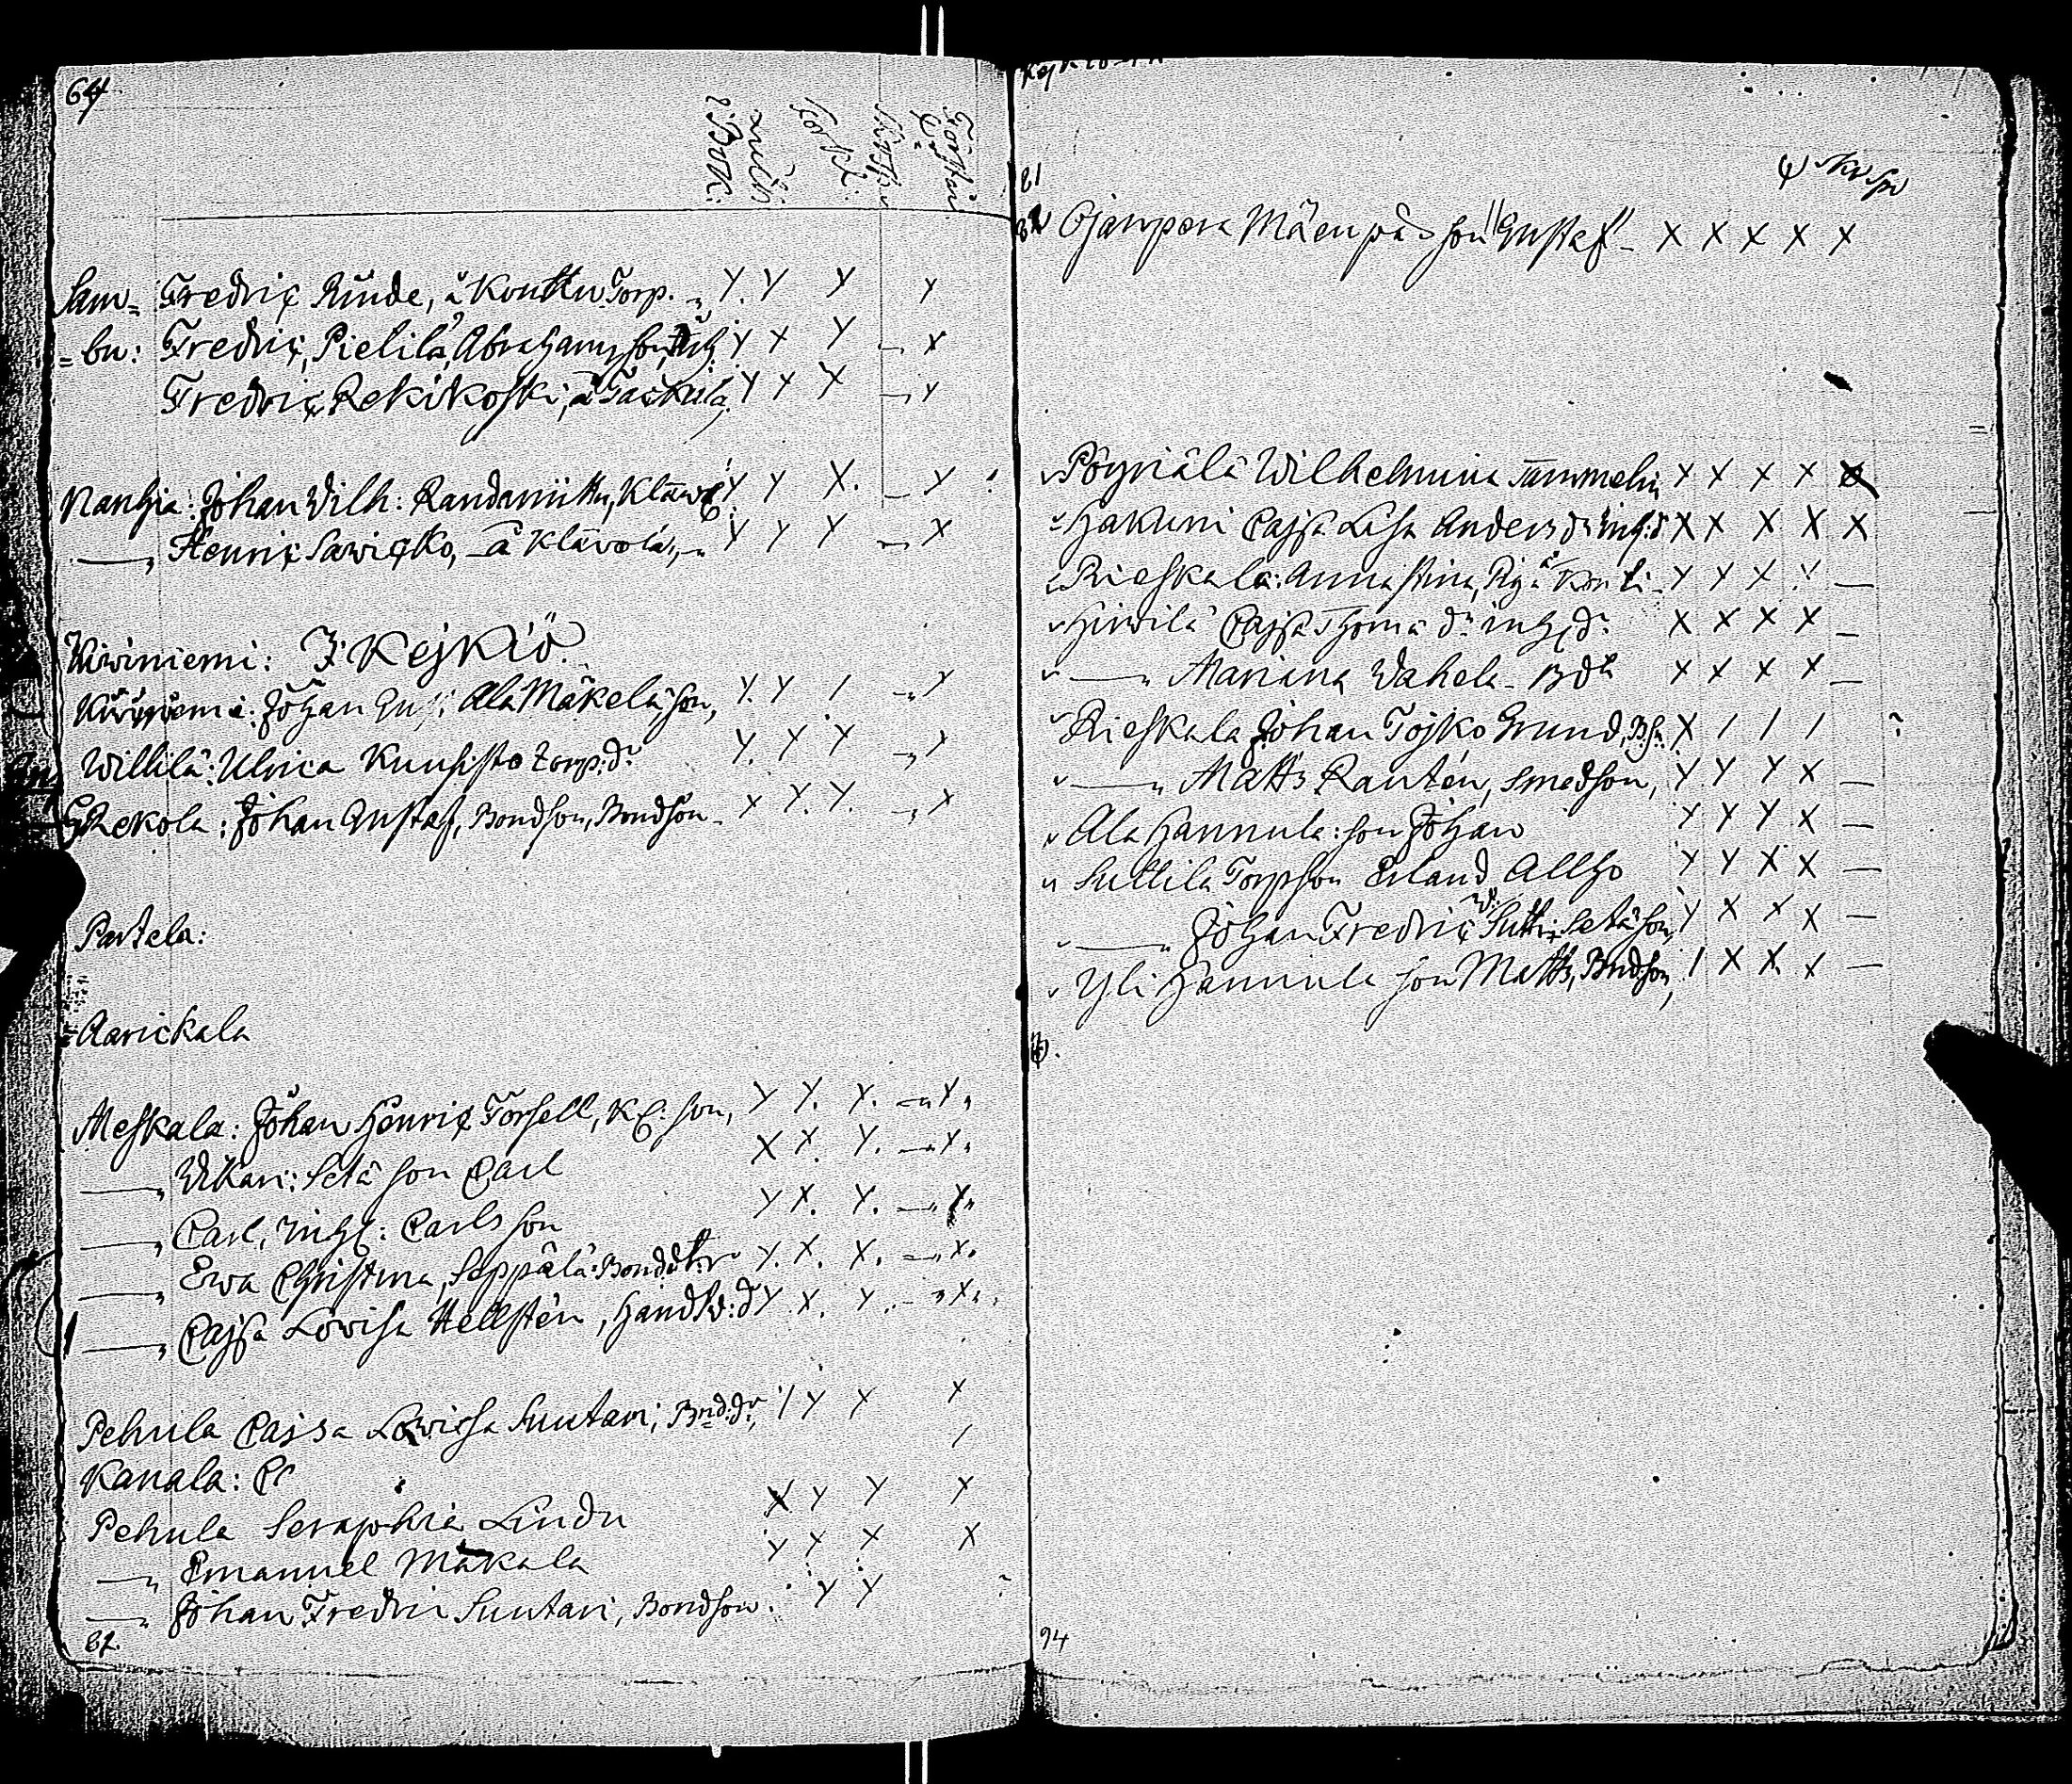 64
i Bok:
Förstån
Sam= Fredric Rinde, å Konttu Torp. " Y. Y Y Y
= bu: Fredric, Pielilä, Abrahamsson, Y X Y — X
Fredric Rekikoski, å Taskula, Y Y X — Y
Nanhia: Johan Wilh: Randaniittu, Klåw Y Y X. — Y
—, Henric Sawicko, å Klåvola, " Y Y Y — X
Kiviniemi: I Kejkiö
Kiviniemi: Johan Gust: Ala Mäkelä, son, Y. Y / —" Y
Willilä: Ulrica Kuusisto torp:dr Y. Y Y —, Y
Rekola: Johan Gustaf, Bondson, Bondson - X Y. Y. —, X
Partela:
Aarickala
Meskala: Johan Henric Forsell, son, Y Y. Y. —" Y "
—, Ukari: Setä son Carl X X. Y. —" Y "
—, Carl, Inh: Carlsson Y X. Y. —" Y "
—, Ewa Christina, Seppälä: Bond dtr Y. X. X. —" X.
—, Cajsa Lovisa Hellstén, Handtv: d Y X. Y . — " X " ,
Pehula Cajsa Lovisa Suutari; Bnd: dr, Y Y X X
Kanala: C
Pehula Seraphia Lindu X Y Y X
—" Emanuel Makala Y Y X X
—" Johan Fredric Suutari, Bondson. Y Y
82.
81
82 Ojanpera Mäenpää son "Gustaf" - X X X X X
Pöyriälä Wilhelmina Tammelin X X X X
Hakuni Cajsa Lisa Anders dr inh: d X X X X X
Rieskala: Anna Stina, Pig å Kontti - Y Y X Y —
Hirvilä Cajsa Thoma dr inh, dr X X X X —
—" Mariana Wahela - Bdtr X X X X —
Rieskala Johan Tojko Grund, Bs. X / / /
—" Matts Rantén, Smedson, Y Y Y X —
Ala Hannula: son Johan Y Y Y X —
Suttila Torpson Erland Allho Y Y X X —
—" Johan Fredric Sutti: Setä son, Y X X X —
Yli Hannula son Matts, Bndson, / X X X —
94